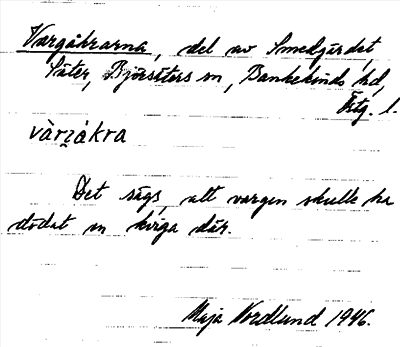 Vargåkrarna, del av Smedjärdet,
Säter, Björsäters sn, Bankekinds hd,
Östg. l.
vàrgåkra
Det sägs, att vargen skulle ha
dödat en kviga där.
Maja Nordlund 1946.